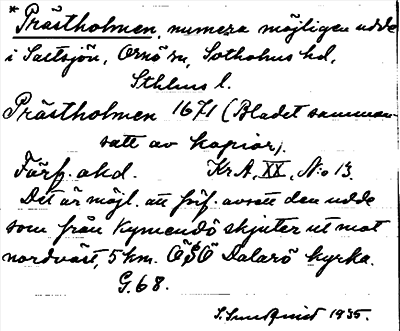 * Prästholmen, numera möjligen udde
i Saltsjön, Ornö sn, Sotholms hd,
Sthlms l.
Prästholmen 1671 (Bladet samman-
satt av kopior).
Förf. okd. Kr. A. XX, No 13.
Det är möjl. att förf. avsett den udde
som från Kymendö skjuter ut mot
nordväst, 5 km. ÖSÖ Dalarö kyrka.
G. 68.
S. Sundquist 1935.